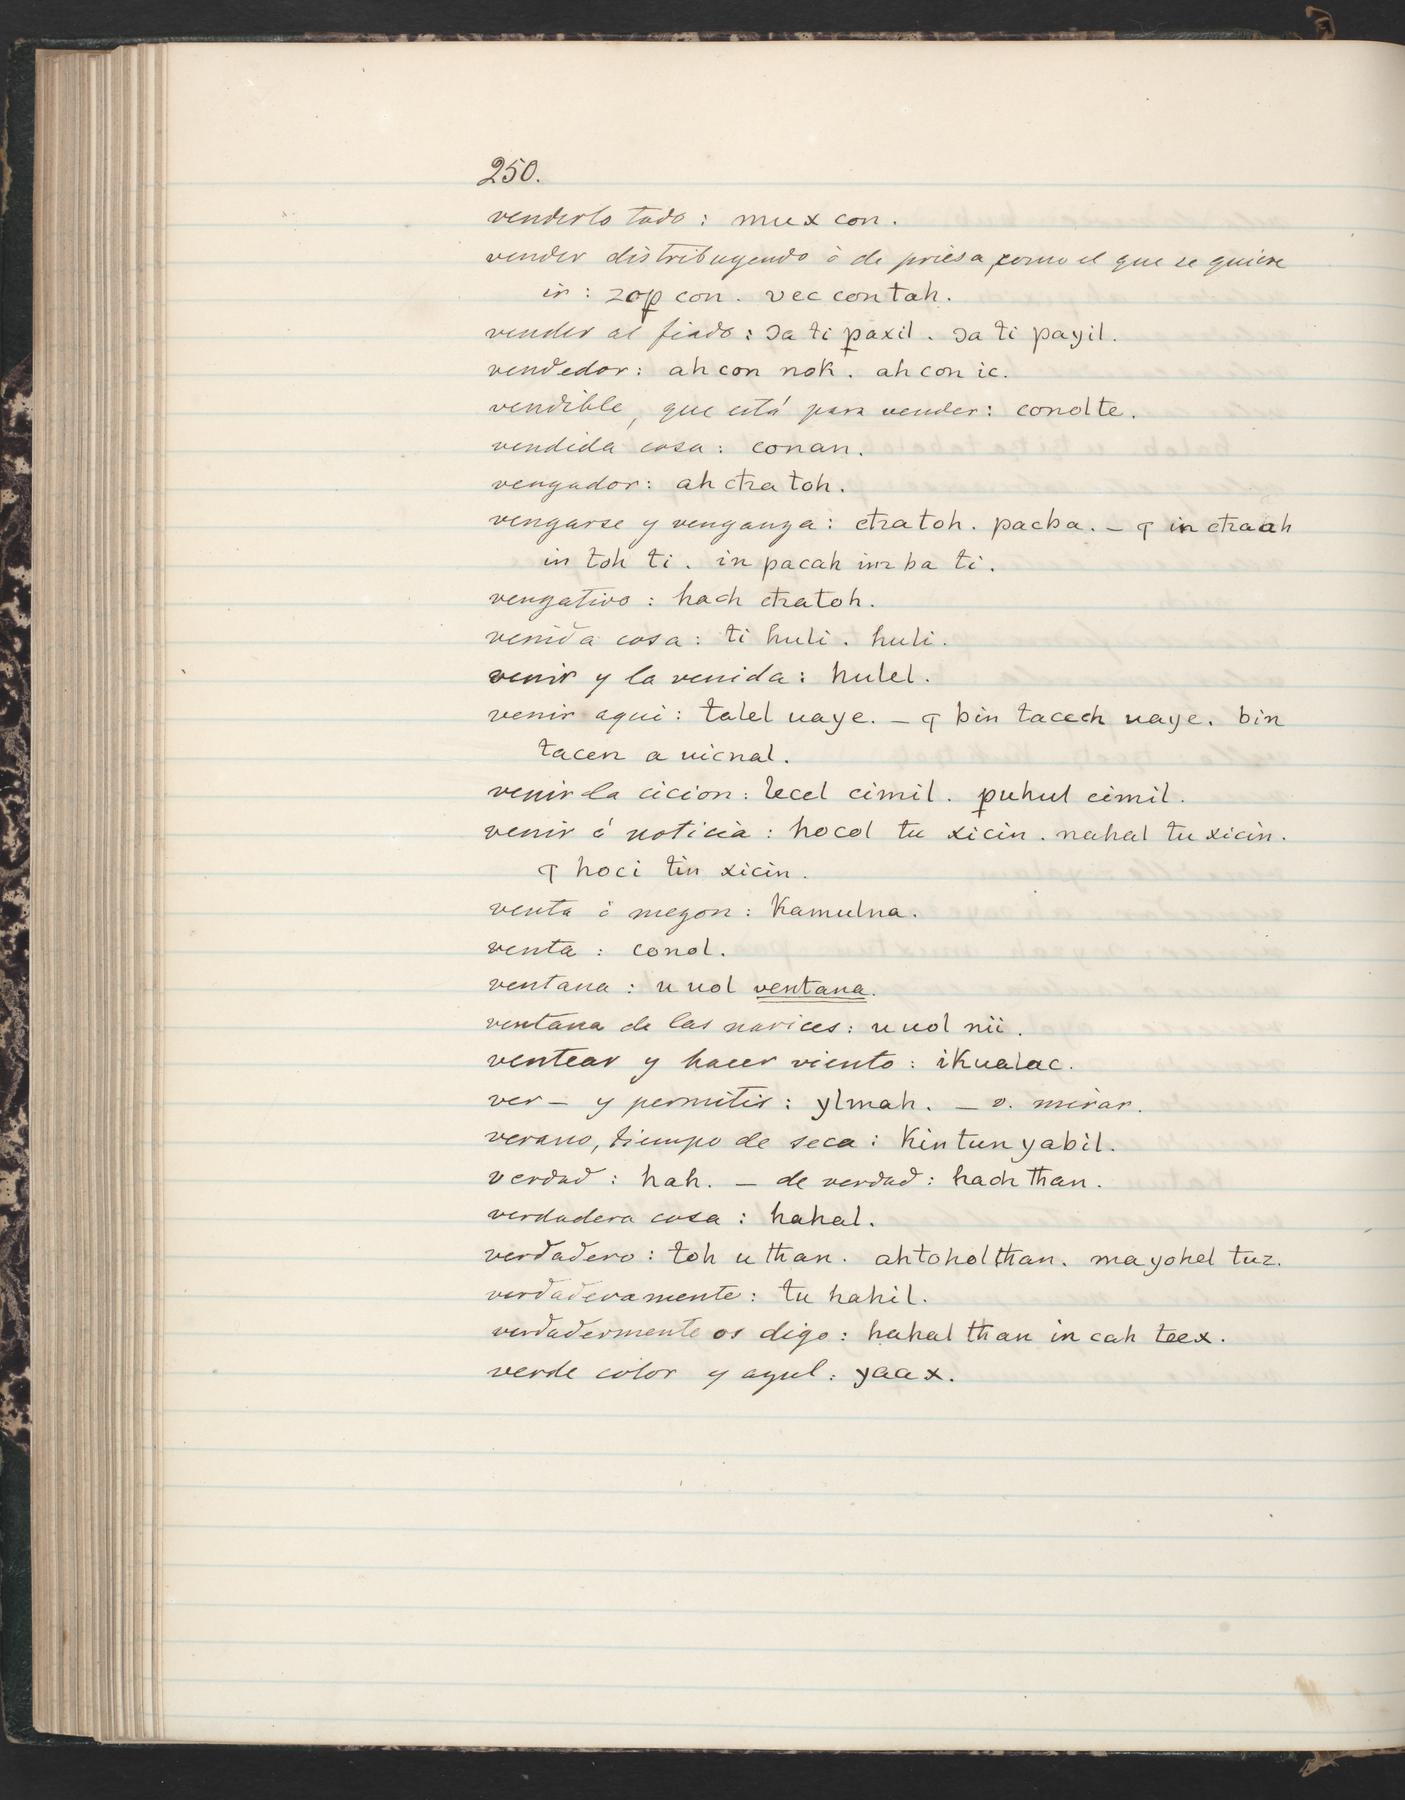 250.
venderlo todo : mux con.
vender distribuyendo ó de priesa, como el que se quiere
ir : zoꝑ con. vec contah.
vender al fiado : ɔa ti ꝑaxil. ɔa ti payil.
vendedor : ah con nok. ah con ic.
vendible, que está para vender : conolte.
vendida cosa : conan.
vengador : ah cħa toh.
vengarse y venganza : cħatoh. pacba. — ꟼ in cħaah
in toh ti. in pacah imba ti.
vengativo : hach cħatoh.
venida cosa : ti huli. huli.
venir y la venida : hulel.
venir aqui : talel uaye. — ꟼ bin tacech uaye. bin
tacen a uicnal.
venir la cicion : lecel cimil. ꝑuhul cimil.
venir á noticia : hocol tu xicin. nahal tu xicin.
ꟼ hoci tin xicin.
venta ó mezon : kamulna.
venta : conol.
ventana : u uol ventana.
ventana de las narices : u uol nii.
ventear y hacer viento : ikualac.
ver — y permitir : ylmah. — v. mirar.
verano, tiempo de seca : kintunyabil.
verdad : hah. — de verdad : hach than.
verdadera cosa : hahal.
verdadero : toh u than. ahtoholthan. ma yohel tuz.
verdaderamente : tu hahil.
verdadermente os digo : hahal than in cah teex.
verde color y azul : yaax.